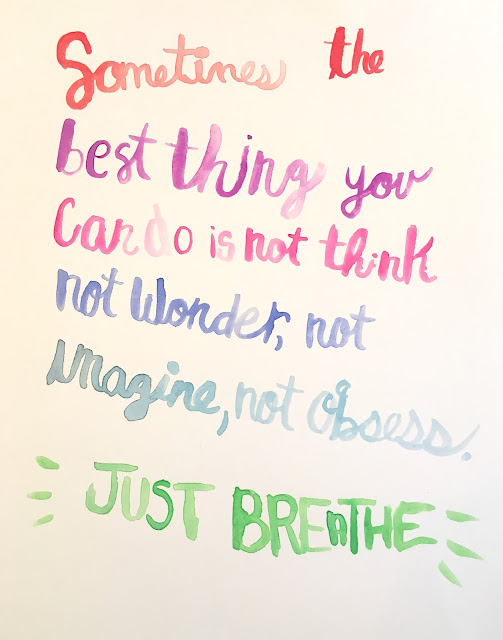 Sometines the
best thing you
Can do is not think
not Wonder, not
imagine, not obsess.
JUST BREATHE